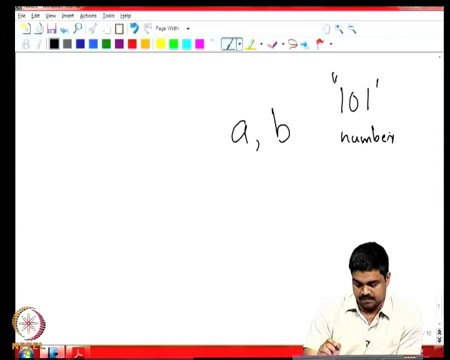 File Edit View Insert Actions Tools Help
Page Width
"101'
a, b
number